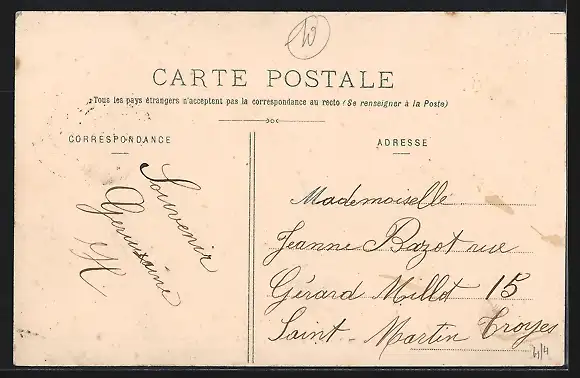 W
CARTE POSTALE
Tous les pays étrangers n'acceptent pas la correspondance au recto (Se renseigner à la Poste)
CORRESPONDANCE
Souvenir
Germaine
H
ADRESSE
Mademoiselle
Jeanne Bazot rue
Gérard Millet 15
Saint-Martin Troyes
4/4